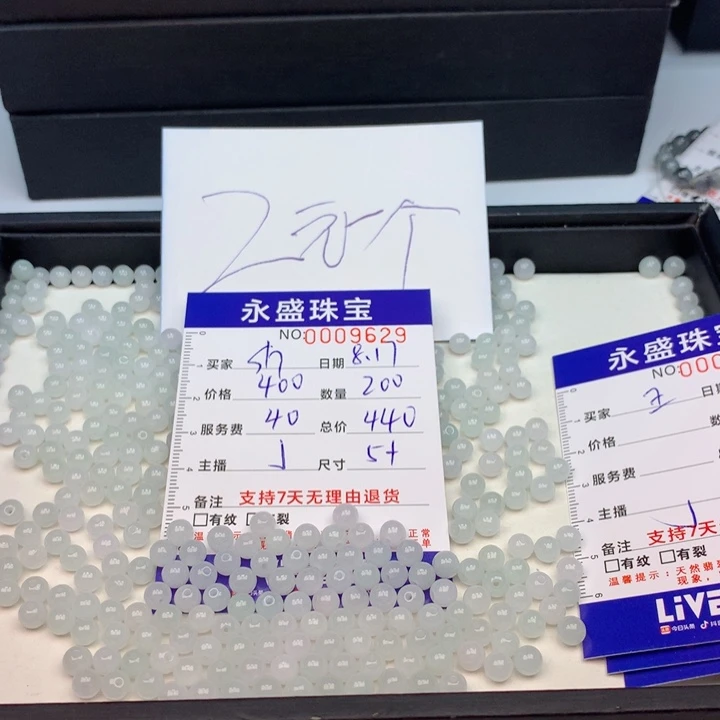 2元一个
永盛珠宝
NO:0009629
买家 日期 8.17
价格 400 数量 200
服务费 40 总价 440
主播 J 尺寸 5+
备注 支持7天无理由退货
有纹 裂
永盛珠
NO:000
买家 王 日
价格
服务费
主播 J
备注 支持7天
有纹 有裂
温馨提示:天然翡
现象,
LiVE
今日头条 抖